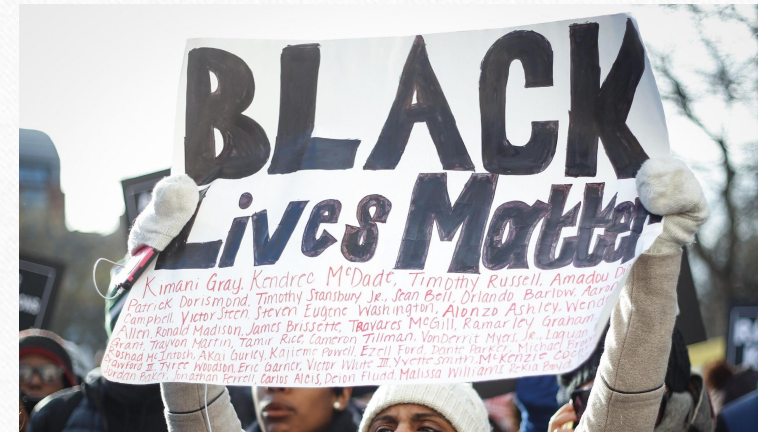 BLACK
Lives Matter
Kimani Gray, Kendrec McDade, Timothy Russell, Amadou
Patrick Dorismond, Timothy Stansbury Jr., Sean Bell, Orlando Barlow, Aaron
Campbell, Victor Steen Steven Eugene Washington, Alonzo Ashley, Wend
Allen, Ronald Madison, James Brissette, Travares McGill, Ramarley Graham
Grant, Trayvon Martin, Tamir Rice, Cameron Tillman, VonDerrit Myers, Jr., Laquan
McIntosh, Akai Gurley, Kajieme Powell, Ezell Ford, Dante Parker, Michael
Crawford II, Tyree Woodson, Eric Garner, Victor White III, Yvette Smith, McKenzie
Jordan Baker, Jonathan Ferrell, Carlos Alcis, Deion Fludd, Malissa Williams